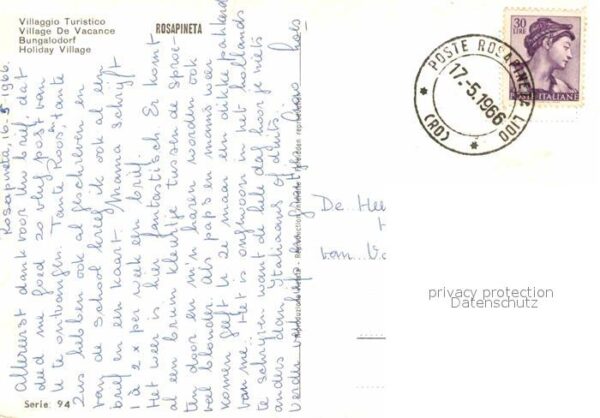 Villaggio Turistico
Village De Vacance
Bungalodorf
Holiday Village
ROSAPINETA
30
LIRE
POSTE ITALIANE
POSTE ROSAPINETA LIDO
17.-5.1966
(RO)
Rosapineta, 16-5-1966.
Allereerst dank voor Uw brief. dat
deed me goed zo vlug post van
te ontvangen. Tante Roos, tante
Zus hebben ook al geschreven en
van de school kreeg ik ook al een
brief en een kaart. Mama schrijft
1 à 2 x per week een brief.
Het weer is hier fantastisch. Er komt
al een bruin kleurtje tussen de sproe-
ten door en m'n haren worden ook
veel blonder. Als paps en mams weer
komen geeft U ze maar een dikke pakkerd
van me. Het is ongewoon in het hollands
te schrijven want de hele dag hoor je niets
anders dan Italiaans of duits.
Verder
De Hee
van V
privacy protection
Datenschutz
Serie: 94